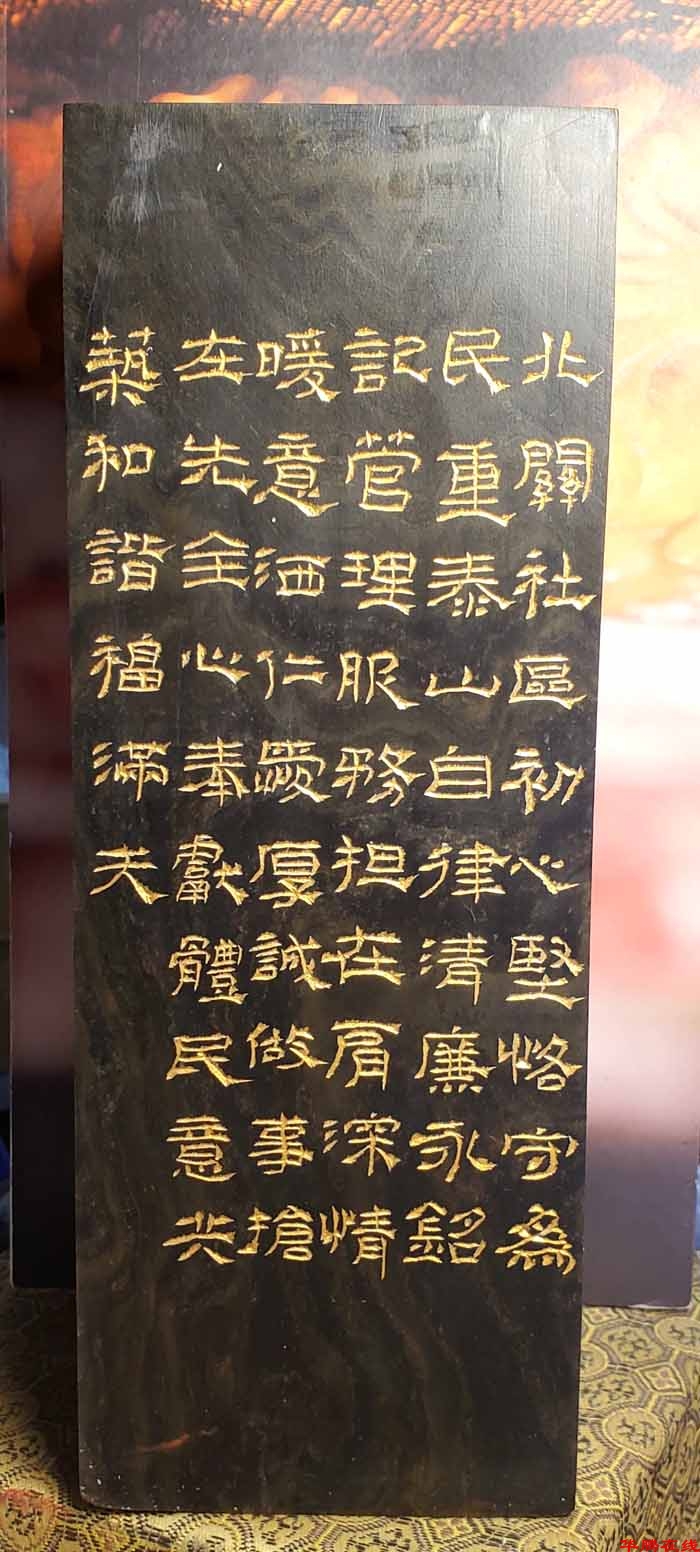 北關社區初心堅恪守為
民重泰山自律清廉永銘
記管理服務担在肩深情
暖意洒仁愛厚誠做事搶
在先全心奉獻體民意共
築和諧福滿天